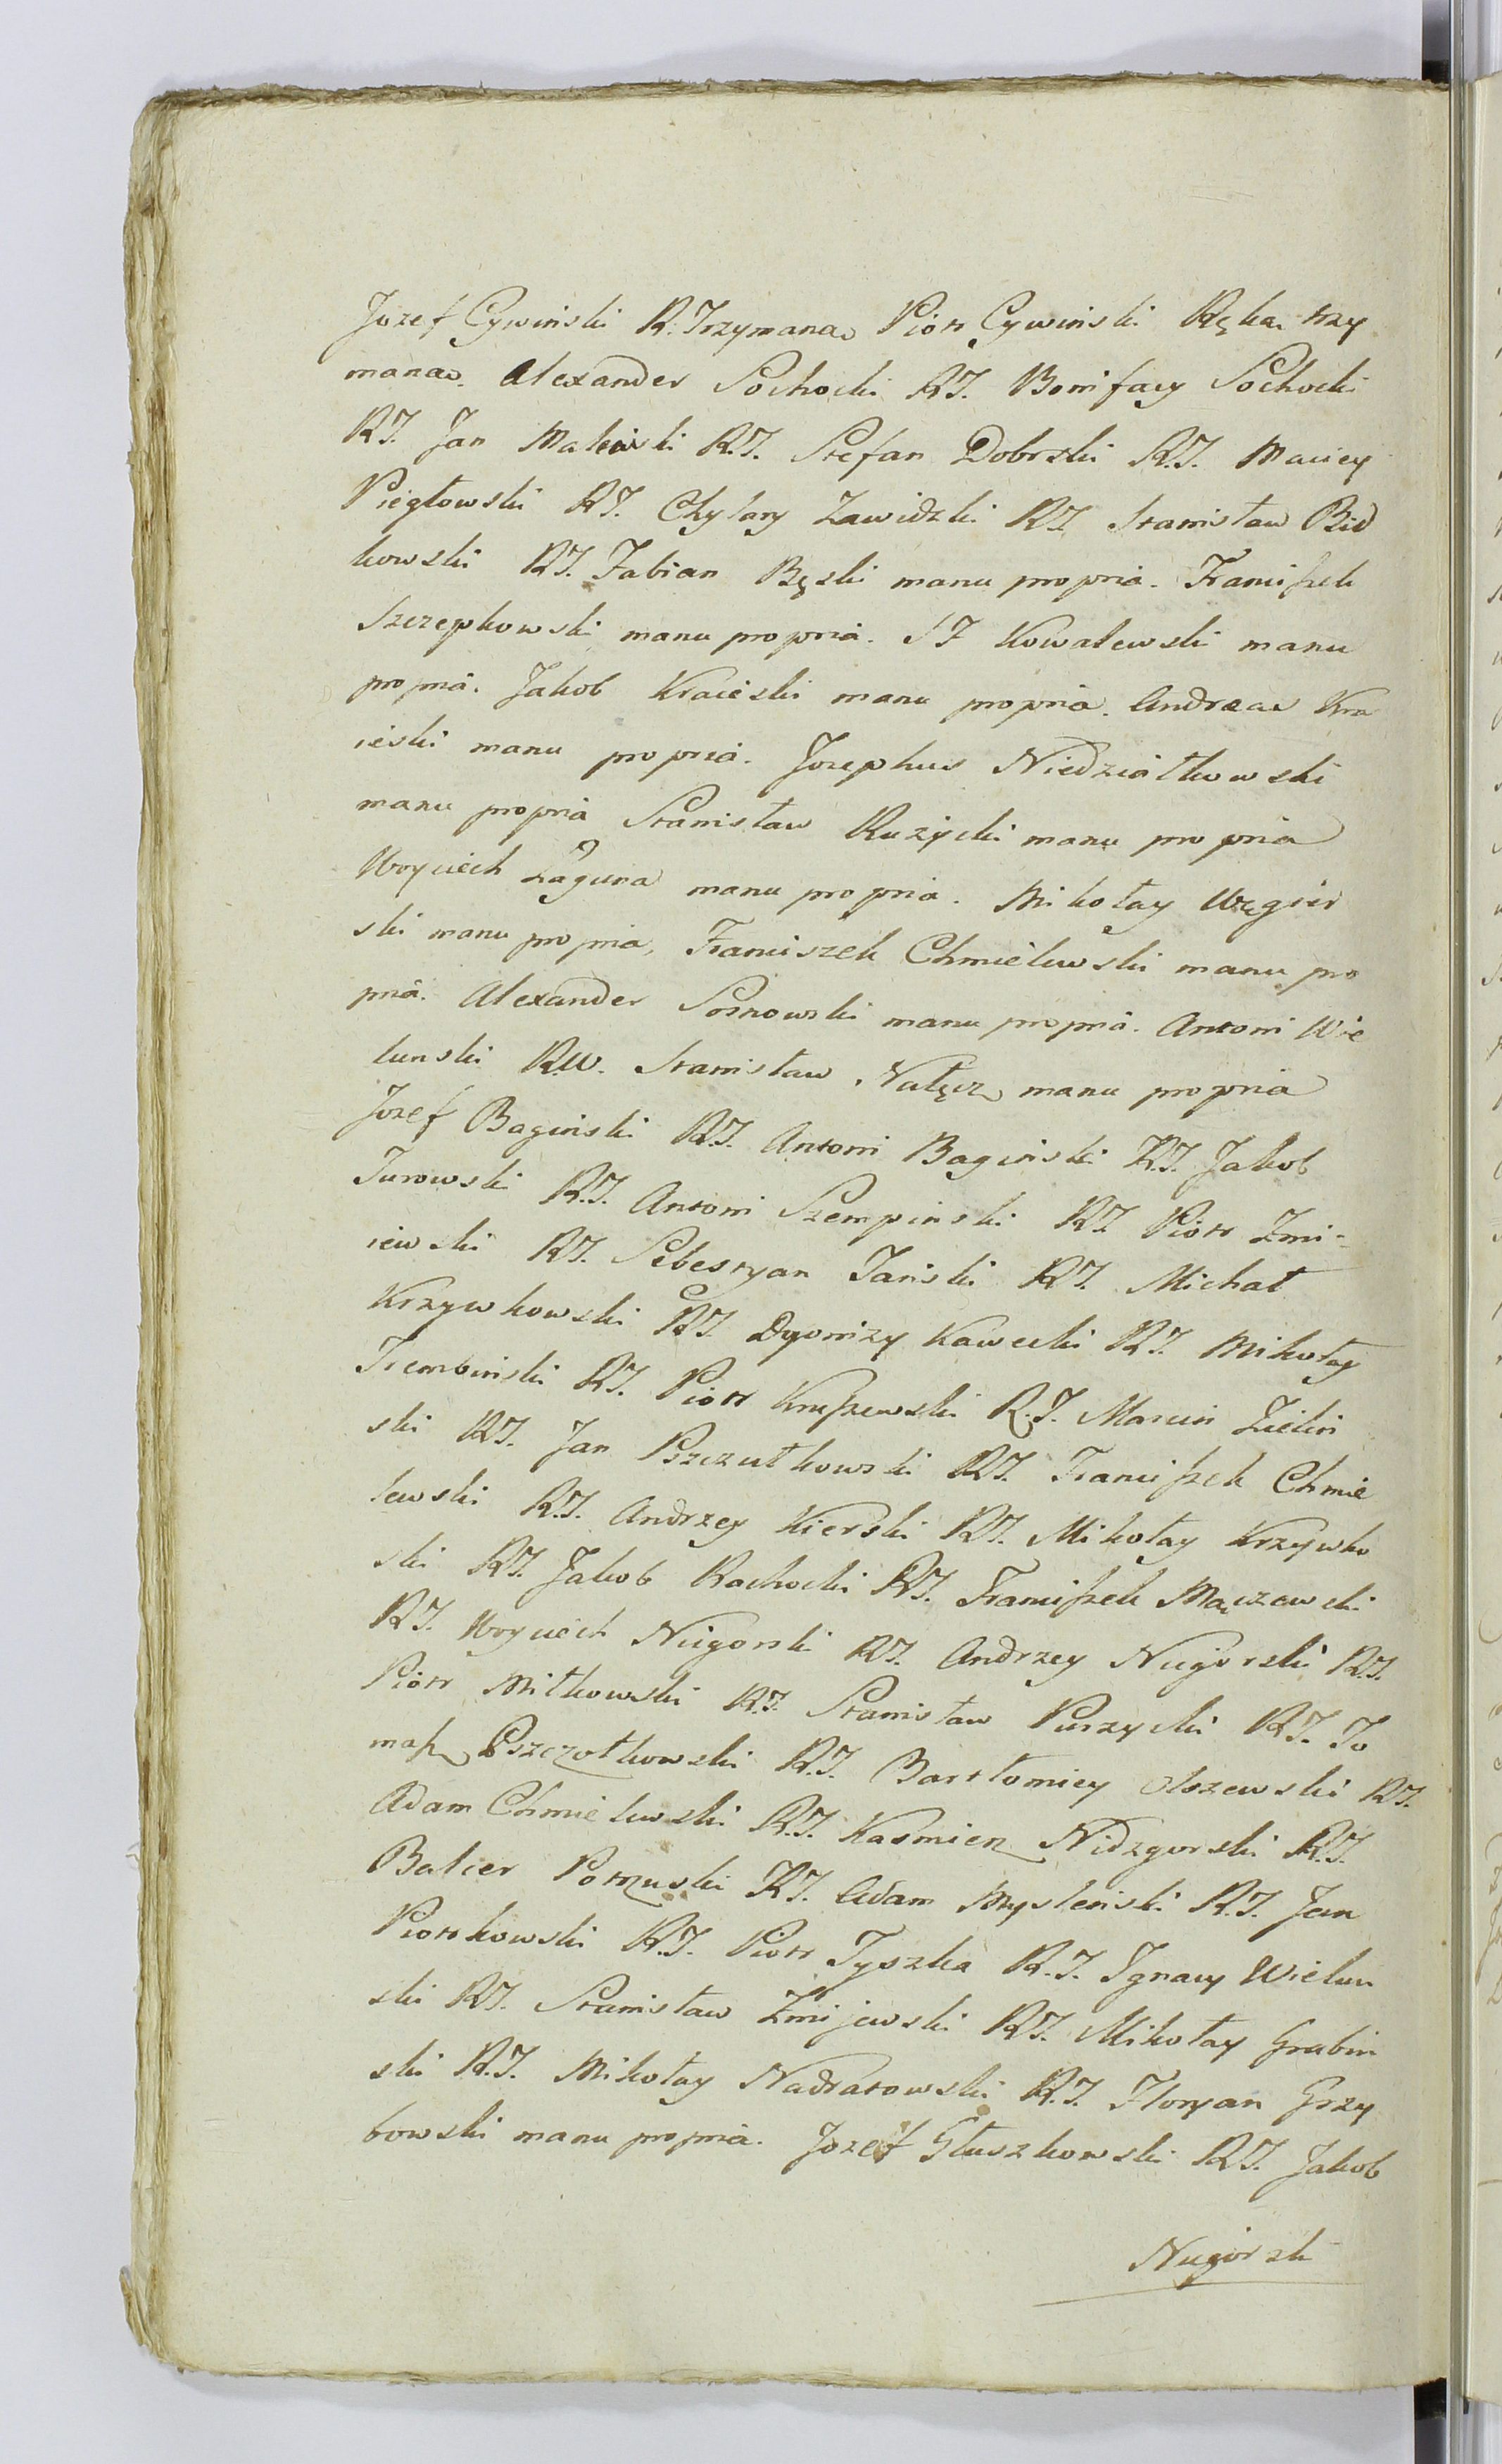 Jozef Cywiński R. Trzymana Piotr Cywiński Ręka trzy
mana. Alexander Sochocki RT. Bonifacy Sochocki
RT. Jan Makiński R.T. Stefan Dobrski R.T. Maciey
Piegłowski RT. Chylary Zawidzki RT. Stanisław Bid
kowski RT. Fabian Bęski manu propria. Franciszek
Szczepkowski manu propria. Kowalewski manu
propria. Jakob Kraieski manu propria. Andreas Kra
ieski manu propria. Josephus Niedziałkowski
manu propria Stanisław Rużycki manu propria
Woyciech Łaguna manu propria. Mikołay Węgier
ski manu propria, Franciszek Chmielewski manu pro
pria. Alexander Sosnowski manu propria. Antoni Wie
lunski R.W. Stanisław Nałęcz manu propria
Jozef Bagiński R.T. Antoni Bagiński R.T. Jakob
Turowski R.T. Antoni Szempinski RT. Piotr Żmi-
iewski RT. Sebestyan Jański RT. Michał
Krzywkowski RT. Dyonizy Kawecki RT. Mikołay
Trembiński RT. Piotr Kruszewski R.T. Marcin Zieliń
ski RT. Jan Pszczułkowski RT. Franciszek Chmie
lewski R.T. Andrzey Kierski RT. Mikołay Krzywko
ski RT. Jakob Rachocki RT. Franciszek Mączewski
RT. Woyciech Nigorski RT. Andrzey Nugorski RT.
Piotr Miłkowski RT. Stanisław Purzycki RT. To
masz Pszczołkowski R.T. Bartłomiey Olszewski RT.
Adam Chmielewski R.T. Kaźmierz Nidzgorski R.T.
Balcer RT. Adam Mysleński R.T. Jan
Piotrkowski R.T. Piotr Tyszka R.T. Ignacy Wielun
ski RT. Stanisław Żmijewski RT. Mikołay Grabin
ski R.T. Mikołay Nadratowski R.T. Floryan Grzy
bowski manu propria. Jozef Głuszkowski RT. Jakob
Nugorski